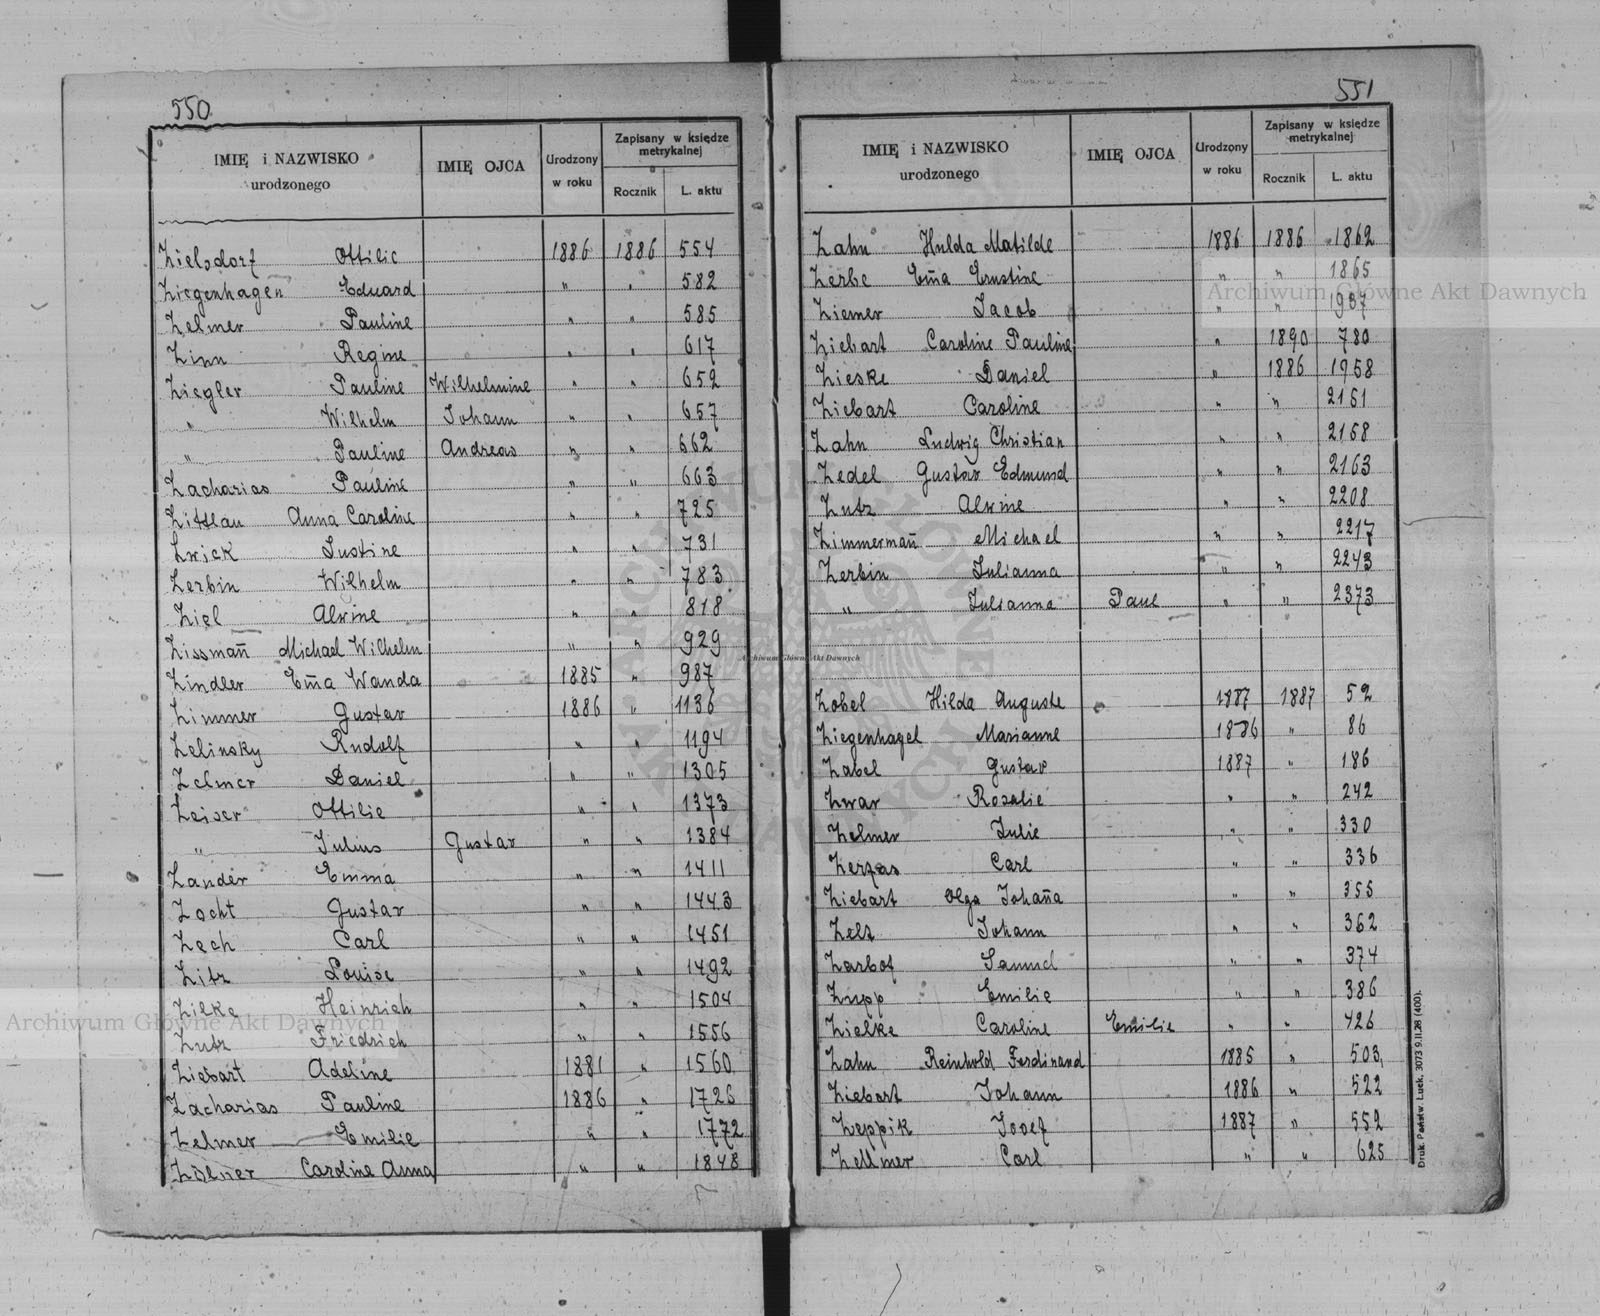 550
IMIĘ i NAZWISKO urodzonego IMIĘ OJCA Urodzony w roku Zapisany w księdze metrykalnej Rocznik L. aktu
Zielsdorf Ottilie 1886 1886 554
Ziegenhagen Eduard " " 582
Zelmer Pauline " " 585
Zinn Regine " " 617
Ziegler Pauline Wilhelmine " " 652
" Wilhelm Johann " " 657
" Pauline Andreas " " 662
Zacharias Pauline " " 663
Zittlau Anna Caroline " " 725
Zwick Justine " " 731
Zerbin Wilhelm " " 783
Ziel Alwine " " 818
Zissmañ Michael Wilhelm " " 929
Zindler Em̃a Wanda 1885 " 987
Zimmer Gustav 1886 " 1136
Zelinsky Rudolf " " 1194
Zelmer Daniel " " 1305
Zeiser Ottilie " " 1373
" Julius Gustav " " 1384
Zander Emma " " 1411
Zocht Gustav " " 1443
Zech Carl " " 1451
Zitz Louise " " 1492
Zilke Heinrich " " 1504
Zutz Friedrich " " 1556
Ziebart Adeline 1881 " 1560
Zacharias Pauline 1886 " 1726
Zelmer Emilie " " 1772
Zölner Caroline Anna " " 1848
551
IMIĘ i NAZWISKO urodzonego IMIĘ OJCA Urodzony w roku Zapisany w księdze metrykalnej Rocznik L. aktu
Zahn Hulda Matilde 1886 1886 1862
Zerbe Em̃a Ernstine " " 1865
Ziemer Jacob " " 1937
Ziebart Caroline Pauline " 1890 780
Zieske Daniel " 1886 1958
Ziebart Caroline " " 2151
Zahn Ludwig Christian " " 2158
Zedel Gustav Edmund " " 2163
Zutz Alwine " " 2208
Zimmermañ Michael " " 2217
Zerbin Julianna " " 2243
" Julianna Paul " " 2373
Zobel Hilda Auguste 1887 1887 52
Ziegenhagel Marianne 1886 " 86
Zabel Gustav 1887 " 186
Zwar Rosalie " " 242
Zelmer Julie " " 330
Zerzas Carl " " 336
Ziebart Olga Johaña " " 355
Zelz Johann " " 362
Zarbot Samuel " " 374
Zupp Emilie " " 386
Zielke Caroline Emilie " " 426
Zahn Reinhold Ferdinand 1885 " 503
Ziebart Johann 1886 " 522
Zeppik Josef 1887 " 552
Zellmer Carl " " 625
Druk. Państw. Łuck, 3073 9.II.28 (400).
Archiwum Główne Akt Dawnych
Archiwum Główne Akt Dawnych
Archiwum Główne Akt Dawnych
ARCHIWUM GŁÓWNE AKT DAWNYCH